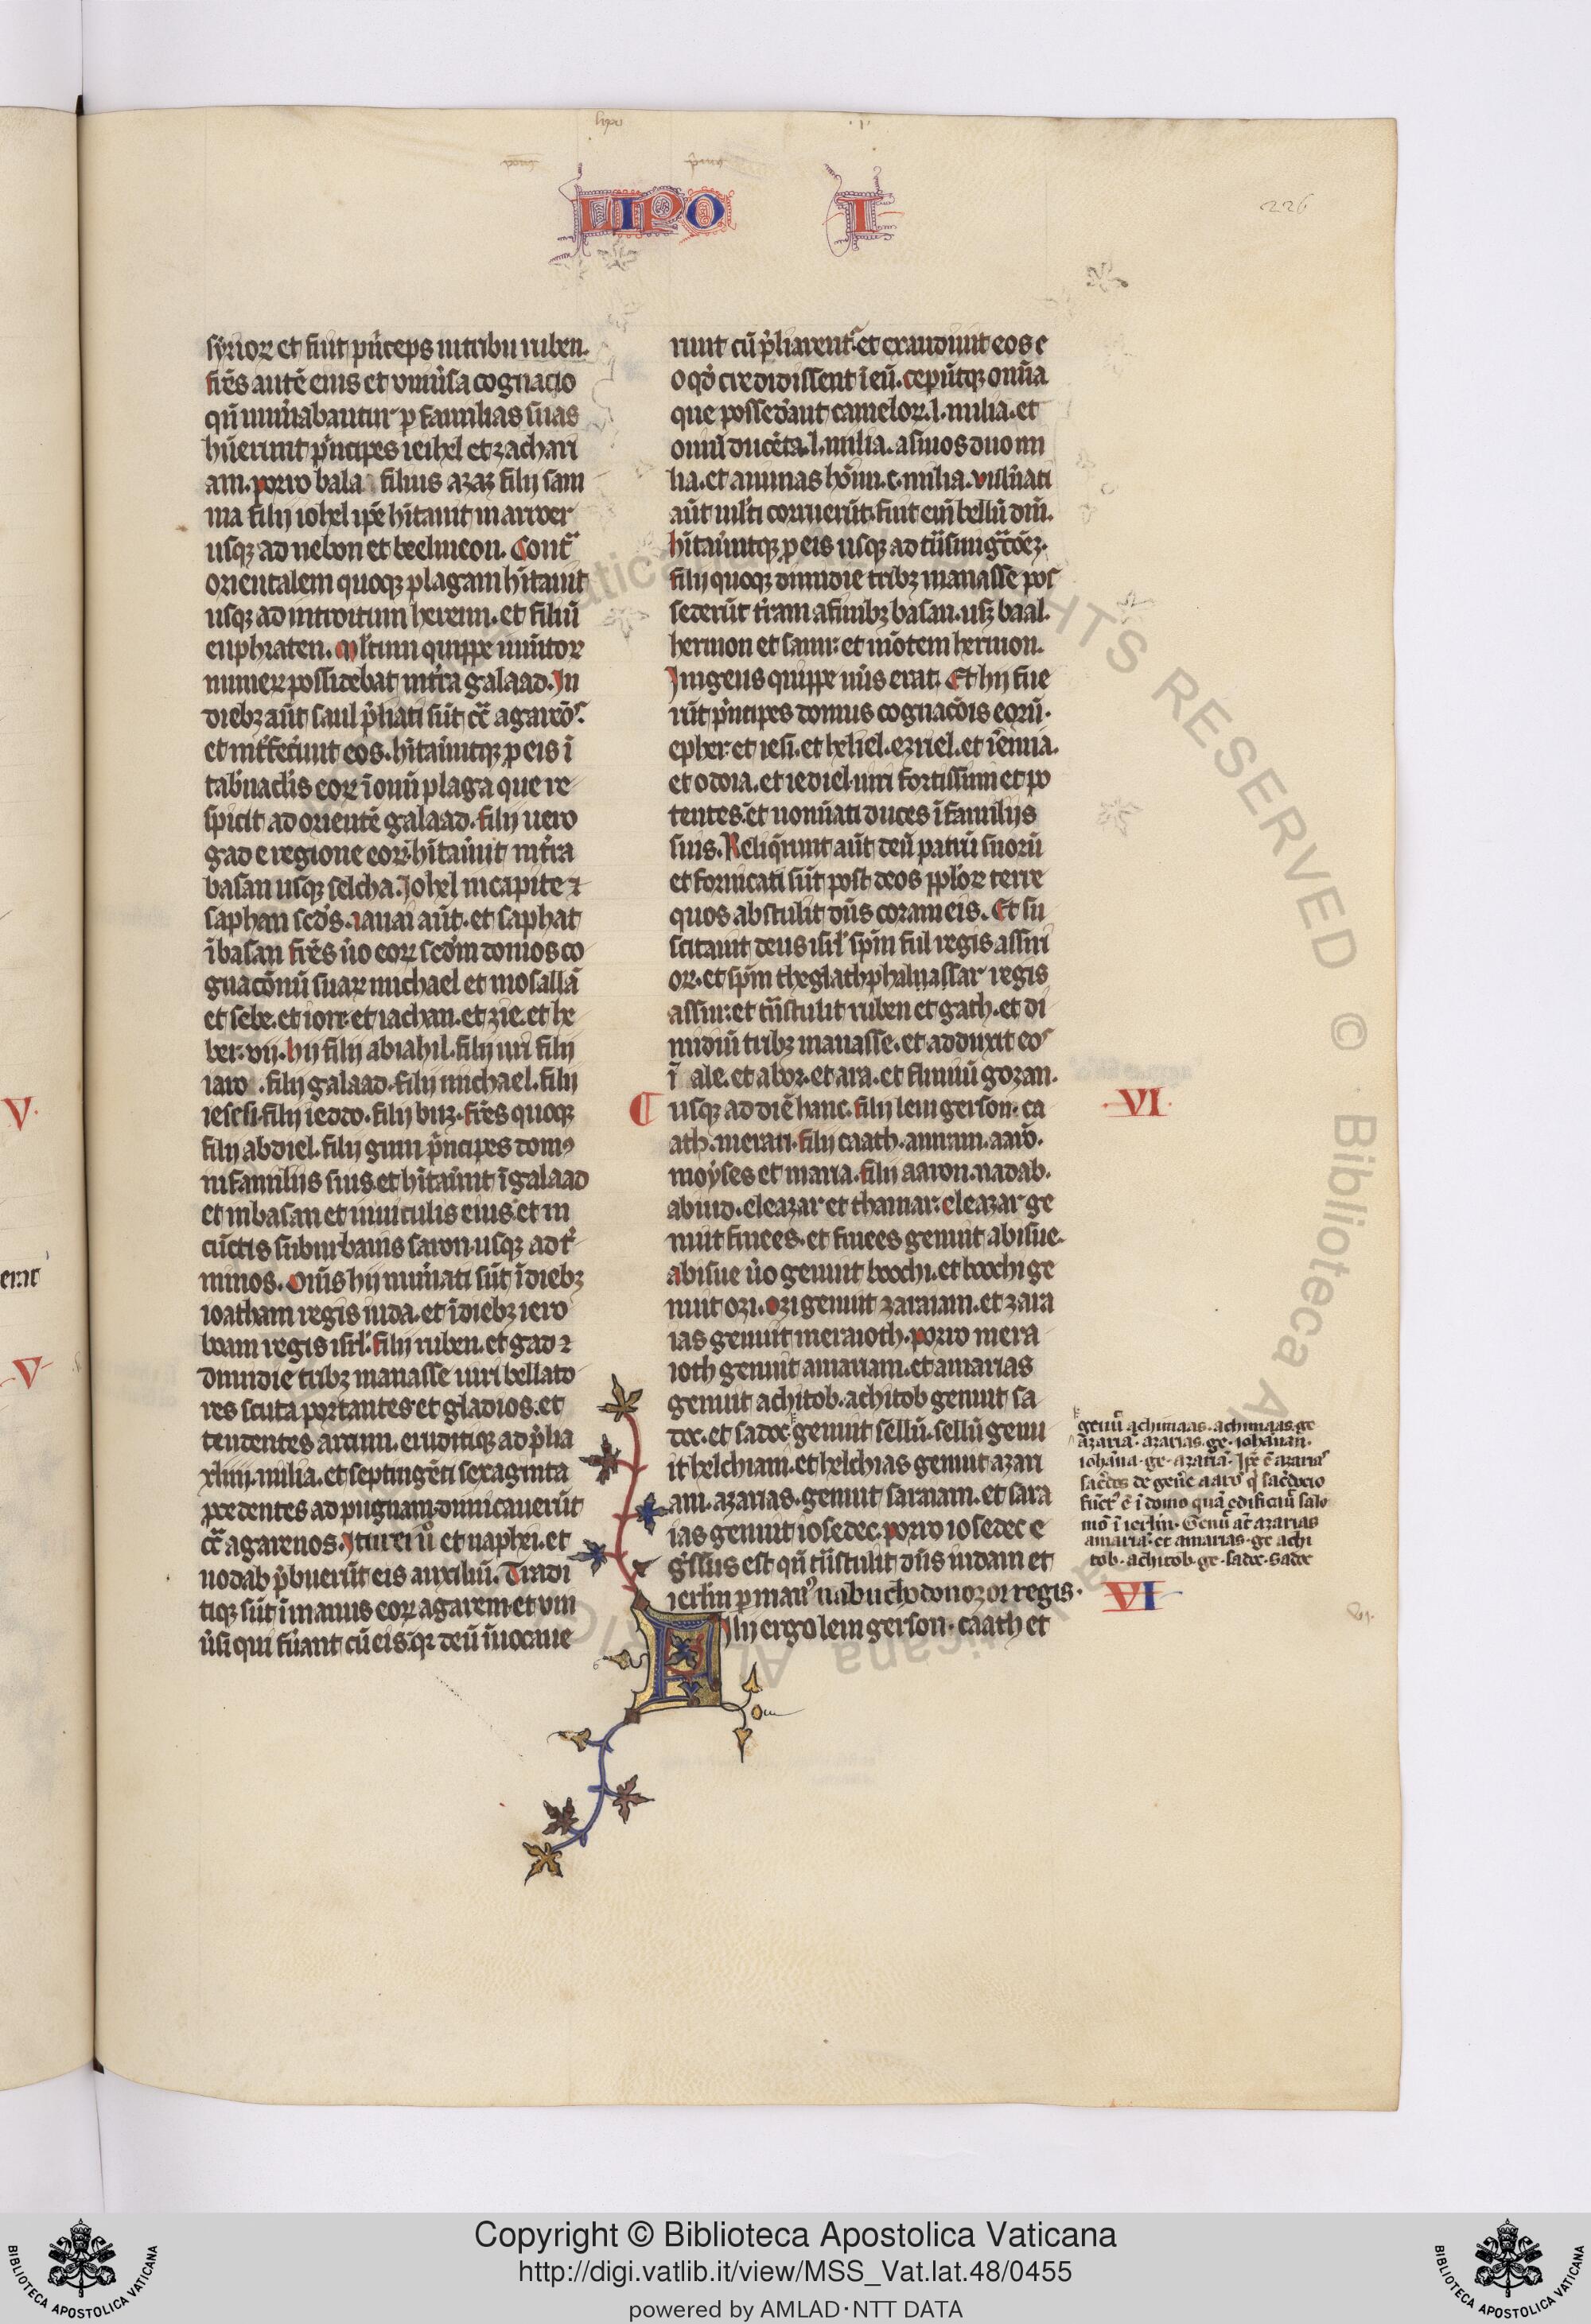 lipo
.i.
pmus
LIPO I
226
syrior et fuit pñceps in tribu ruben.
frẽs autẽ eius et uniũsa cognacio
qñ num̃abantur p familias suas
hũerunt pñcipes ieihel et zachari
am. porro bala filius azaz filij sam
ma filij iohel ipẽ hĩtauit in arroer
usqꝫ ad nebon et beelmeon. Contᵃ
orientalem quoqꝫ plagam hĩtauit
usqꝫ ad introitum heremi. et fluũ
euphraten. Multum quippe iumtoꝝ
numeꝝ possidebat in tr̃a galaad. In
diebꝫ aũt saul p̃liati sũt cõ agareoˢ.
et int̃fecũnt eos. hĩtaũntqꝫ p eis ĩ
tab̃naclis eoꝝ ĩ om̃i plaga que re
spicit ad orientẽ galaad. filij uero
gad e regione eoꝝ hĩtaũnt in tr̃a
basan usqꝫ selcha. Iohel in capite ⁊
saphan scd̃s. ianai aũt. et saphat
ĩ basan frẽs ũo eoꝝ scd̃m domos co
gnac̃onũ suaꝝ michael et mosallã
et sebe. et iore. et iachan. et zie. et he
ber. vij. hij filij abiahil. filij uri filij
iaro . filij galaad. filij michael. filij
iesesi. filij ieddo. filij buz. frẽs quoqꝫ
filij abdiel. filij guni pñcipes domꝰ
in familijs suis. et hĩtaũnt ĩ galaad
et in basan et in uiculis eius. et in
cũctis suburbanis saron. usqꝫ ad t̃
minos. Om̃s hij num̃ati sũt ĩ diebꝫ
ioatham regis iuda. et ĩ diebꝫ iero
boam regis isrl̃. filij ruben. et gad ⁊
dimidie tribꝫ manasse uiri bellato
res scuta portantes et gladios. et
tendentes arcum. eruditiqꝫ ad p̃lia
xliiij. milia. et septingẽti sexaginta
procedentes ad pugnam dimicauerũt
cõ agarenos. Iturei ũo et naphei. et
nodab p̃buerũt eis auxiliũ. Tradi
tiqꝫ sũt ĩ manus eoꝝ agareni. et uni
ũsi qui fũant cũ eis. qꝛ deũ ĩuocaue
runt cũ p̃liarentᵣ. et exaudiuit eos e
o qd̃ credidissent ĩ eũ. cepũtqꝫ om̃ia
que possed̃ant cameloꝝ .l. milia. et
ouiũ ducẽta .l. milia. asinos duo mi
lia. et animas hoĩm .c. milia. uulñati
aũt mĩti corruerũt. fuit em̃ bellũ dñi.
hĩtaũntqꝫ p eis usqꝫ ad tñsmigᵃc̃oeꝫ.
filij quoqꝫ dimidie tribꝫ manasse pos
sederũt tr̃am a finibꝫ basan. usqꝫ baal.
hermon et sanir. et mõtem hermon.
Ingens quippe nũs erat. Et hij fue
rũt pñcipes domus cognac̃ois eoꝝ.
epher. et iesi. et heliel. ezriel. et iẽmia.
et odoia. et iediel. uiri fortissimi et po
tentes. et nom̃ati duces ĩ familijs
suis. Reliq̃runt aũt deũ patrũ suorũ
et fornicati sũt post deos ppl̃oꝝ terre
quos abstulit dñs coram eis. Et su
scitauit deus isrl̃ sp̃m ful regis assiri
oꝝ. et sp̃m theglathphalnassar regis
assur. et tñstulit ruben et gath. et di
midiũ tribꝫ manasse. et adduxit eoˢ
ĩ ale. et abor. et ara. et fluuiũ gozan.
usqꝫ ad diẽ hanc. filij leui gerson. ca
VI
ath. merari. filij caath. amram. aarõ.
moyses et maria. filij aaron. nadab.
abiud. eleazar et thamar. eleazar ge
nuit finees. et finees genuit abisue.
abisue ũo genuit bocchi. et bocchi ge
nuit ozi. ozi genuit zaraiam. et zara
ias genuit meraioth. porro mera
ioth genuit amariam. et amarias
genuit achitob. achitob genuit sa
doc. et sadoc genuit sellũ. sellũ genu
it helchiam. et helchias genuit azari
am. azarias. genuit saraiam. et sara
ias genuit iosedec. porro iosedec e
g̃ssus est qñ tñstulit dñs iudam et
ierlm̃ p manꝰ nabuchodonozor regis.
Filij ergo leui gerson. caath et
genũ achimaas. achimaas. ge
azariã. azarias. ge. iohanan.
iohãna. ge. azariã. Ipẽ ẽ azariaˢ
sac̃dos de geñe aarõ q̃ sac̃docio
fũctꝰ ẽ ĩ domo quã edificauĩ salo
mõ ĩ ierlm̃. Genũ aũt azarias
amariã. et amarias. ge achi
tob. achitob. ge. sadoc. Sadoc
VI
V.
V
Copyright © Biblioteca Apostolica Vaticana
http://digi.vatlib.it/view/MSS_Vat.lat.48/0455
powered by AMLAD·NTT DATA
BIBLIOTECA APOSTOLICA VATICANA
BIBLIOTECA APOSTOLICA VATICANA